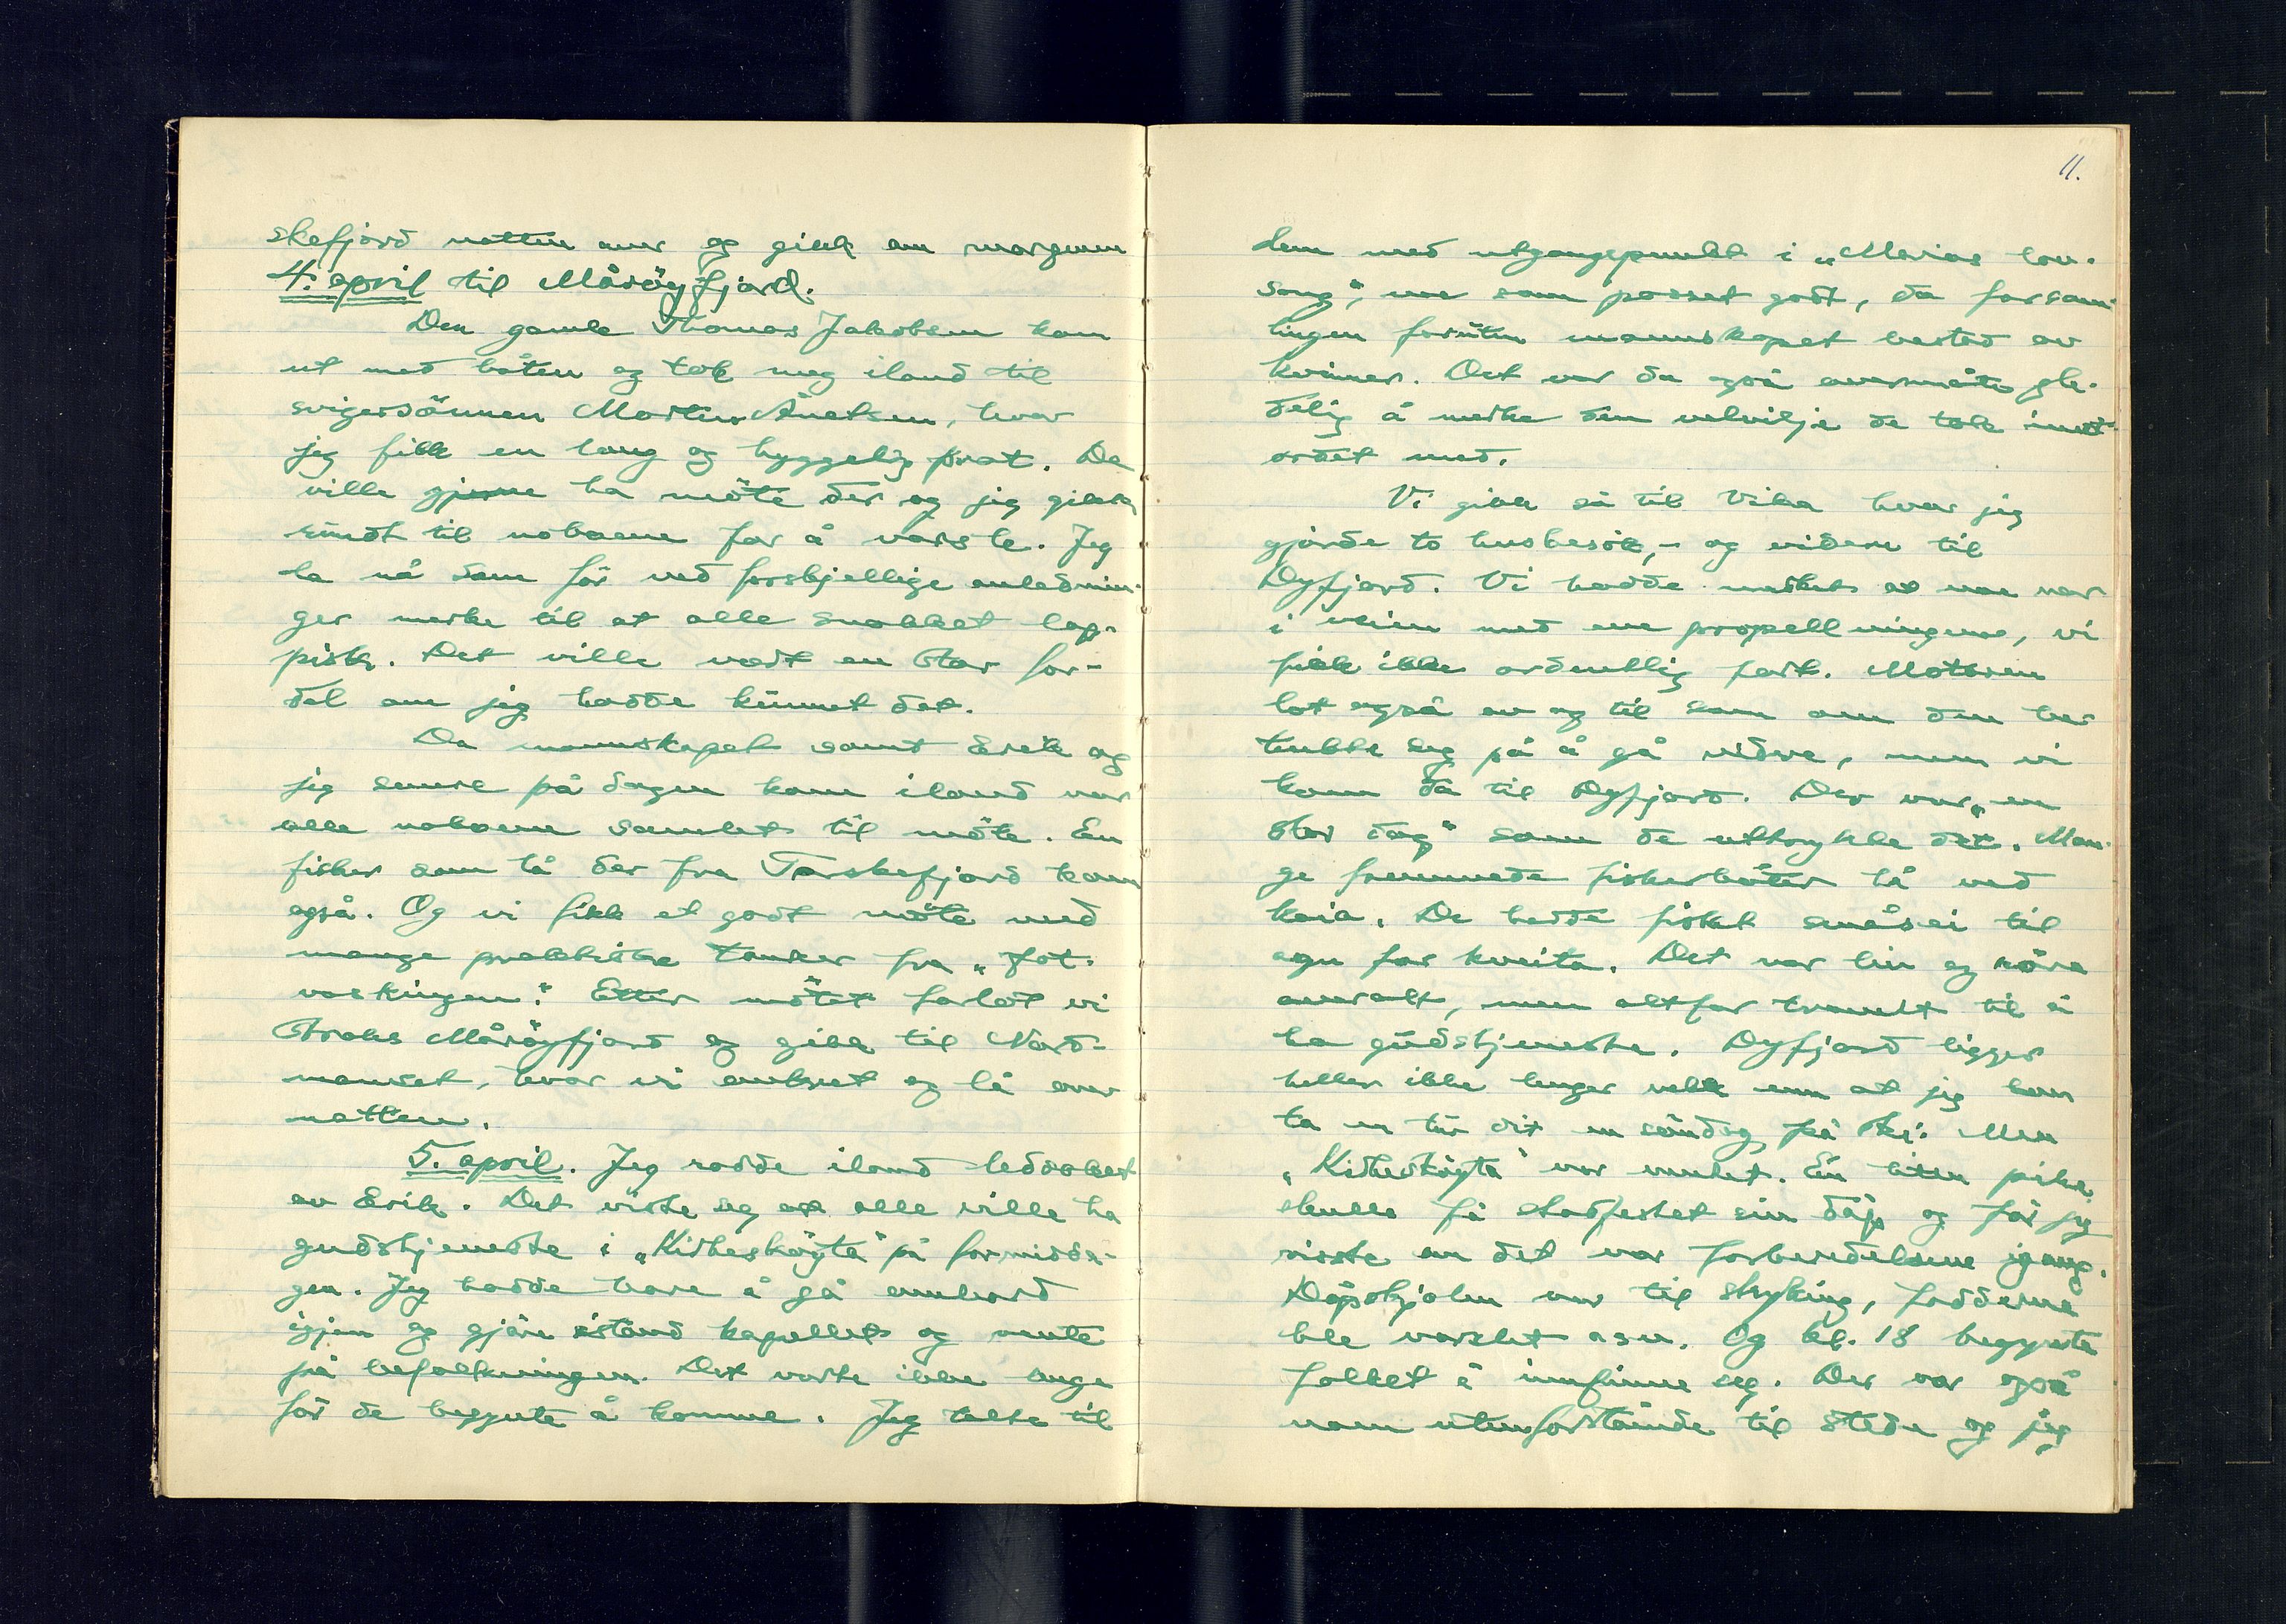 skefjord natten over og gikk om morgenen
4. april til Måröyfjord.
Den gamle Thomas Jakobsen kom
ut med båten og tok meg iland til
svigersönnen Morten Anetsen, hvor
jeg fikk en lang og hyggelig prat. De
ville gjerne ha möte der og jeg gikk
rundt til naboene for å varsle. Jeg
la nå som för ved forskjellige anlednin-
ger merke til at alle snakket lap-
pisk. Det ville vært en stor for-
del om jeg hadde kunnet det.
Da mannskapet samt Erik og
jeg senere på dagen kom iland var
alle naboene samlet til möte. En
fisker som lå der fra Torskefjord kom
også. Og vi fikk et godt möte med
mange praktiske tanker fra „Fot-
vaskingen." Etter mötet forlot vi
straks Måröyfjord og gikk til Nord-
manset, hvor vi ankret og lå over
natten.
5. april. Jeg rodde iland ledsaket
av Erik. Det viste seg at alle ville ha
gudstjeneste i „Kirkesköyta" på formidda-
gen. Jeg hadde bare å gå ombord
igjen og gjöre istand kapellet og vente
på befolkningen. Det varte ikke lenge
för de begynte å komme. Jeg talte til
11.
dem med utgangspunkt i „Marias lov-
sang", noe som passet godt, da forsam-
lingen foruten mannskapet bestod av
kvinner. Det var da også overmåte gle-
delig å merke den velvilje de tok imot
ordet med.
Vi gikk så til Vika hvor jeg
gjorde to husbesök, - og videre til
Dyfjord. Vi hadde merket at noe var
i veien med ene propellvingene, vi
fikk ikke ordentlig fart. Motoren
lot også av og til som om den be-
tenkte seg på å gå videre, men vi
kom da til Dyfjord. Der var „en
stor dag" som de uttrykte det. Man-
ge fremmede fiskerbåter lå ved
kaia. De hadde fisket småsei til
agn for kveita. Det var liv og röre
overalt, men altfor travelt til å
ha gudstjeneste. Dyfjord ligger
heller ikke lenger vekk enn at jeg kan
ta en tur dit en söndag på ski. Men
„Kirkesköyta" var ventet. En liten pike
skulle få stadfestet sin dåp og för jeg
visste om det var forberedelsene igang.
Dåpskjolen var til stryking, fadderne
ble varslet osv. Og kl. 18 begynte
folket å innfinne seg. Der var også
noen utenforstående til stede og jeg